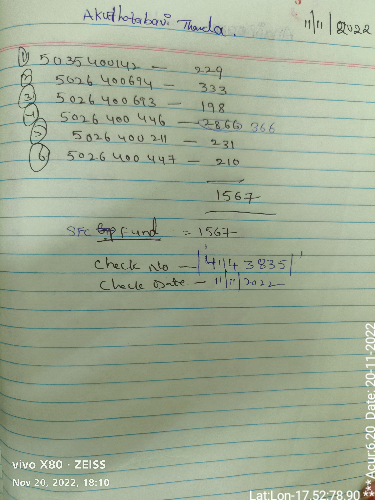 Akuthotabavi Thanda.
11/11/2022
1 5035400142 - 229
2 5026400694 - 333
3 5026400693 - 198
4 5026400446 - 2866 366
5 5026400211 - 231
6 5026400447 - 210
1567-
SFC Fund = 1567-
Check No - 41143835
Check Date - 11/11/2022-
vivo X80 · ZEISS
Nov 20, 2022, 18:10
Lat:Lon-17.52:78.90
***Acur:6.20 Date: 20-11-2022